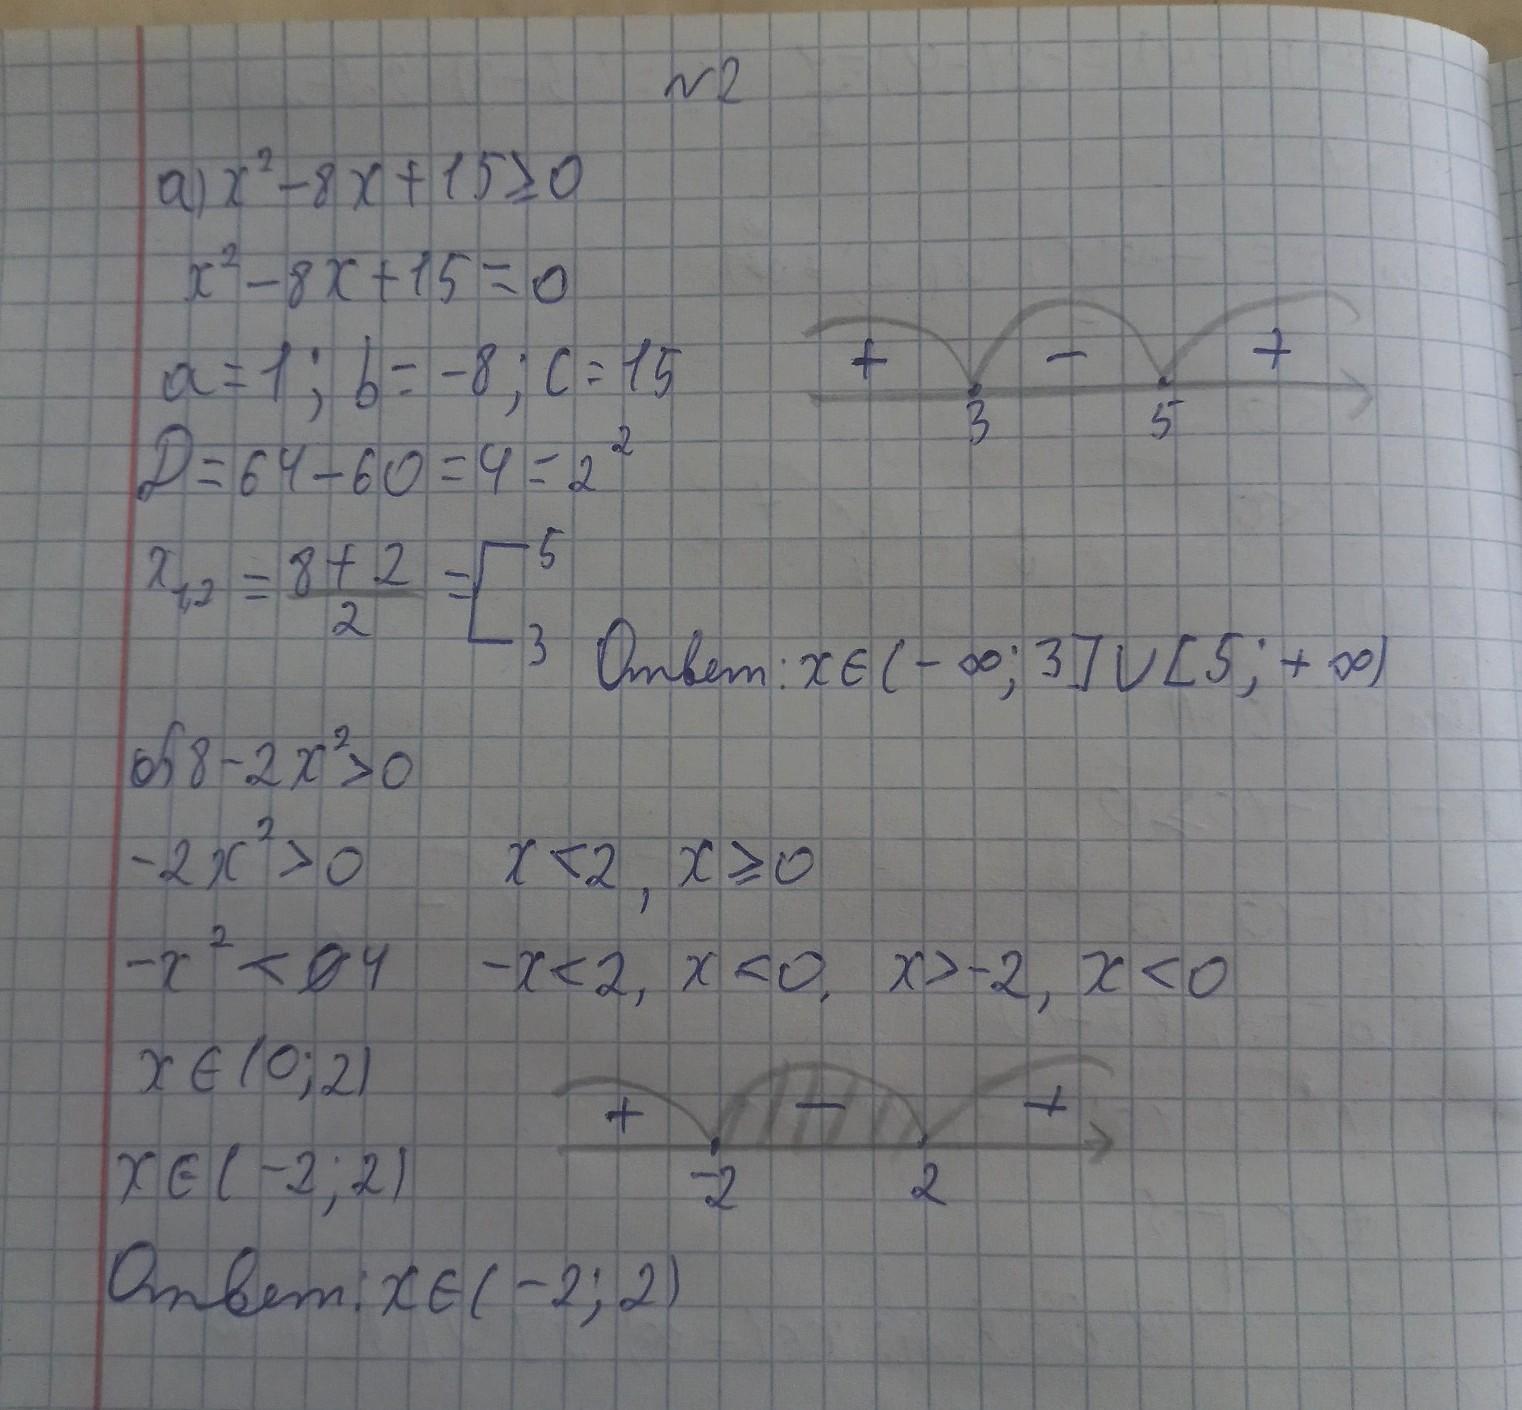 №2
а) x² - 8x + 15 ≥ 0
x² - 8x + 15 = 0
a = 1; b = -8; c = 15
+ - +
3 5
D = 64 - 60 = 4 = 2²
x₁,₂ = (8 + 2)/2 = [5
3
Ответ: x ∈ (-∞; 3] ∪ [5; +∞)
б) 8 - 2x² > 0
-2x² > 0 x < 2, x ≥ 0
-x² < 4 -x < 2, x < 0, x > -2, x < 0
x ∈ (0; 2)
+ - +
x ∈ (-2; 2) -2 2
Ответ: x ∈ (-2; 2)